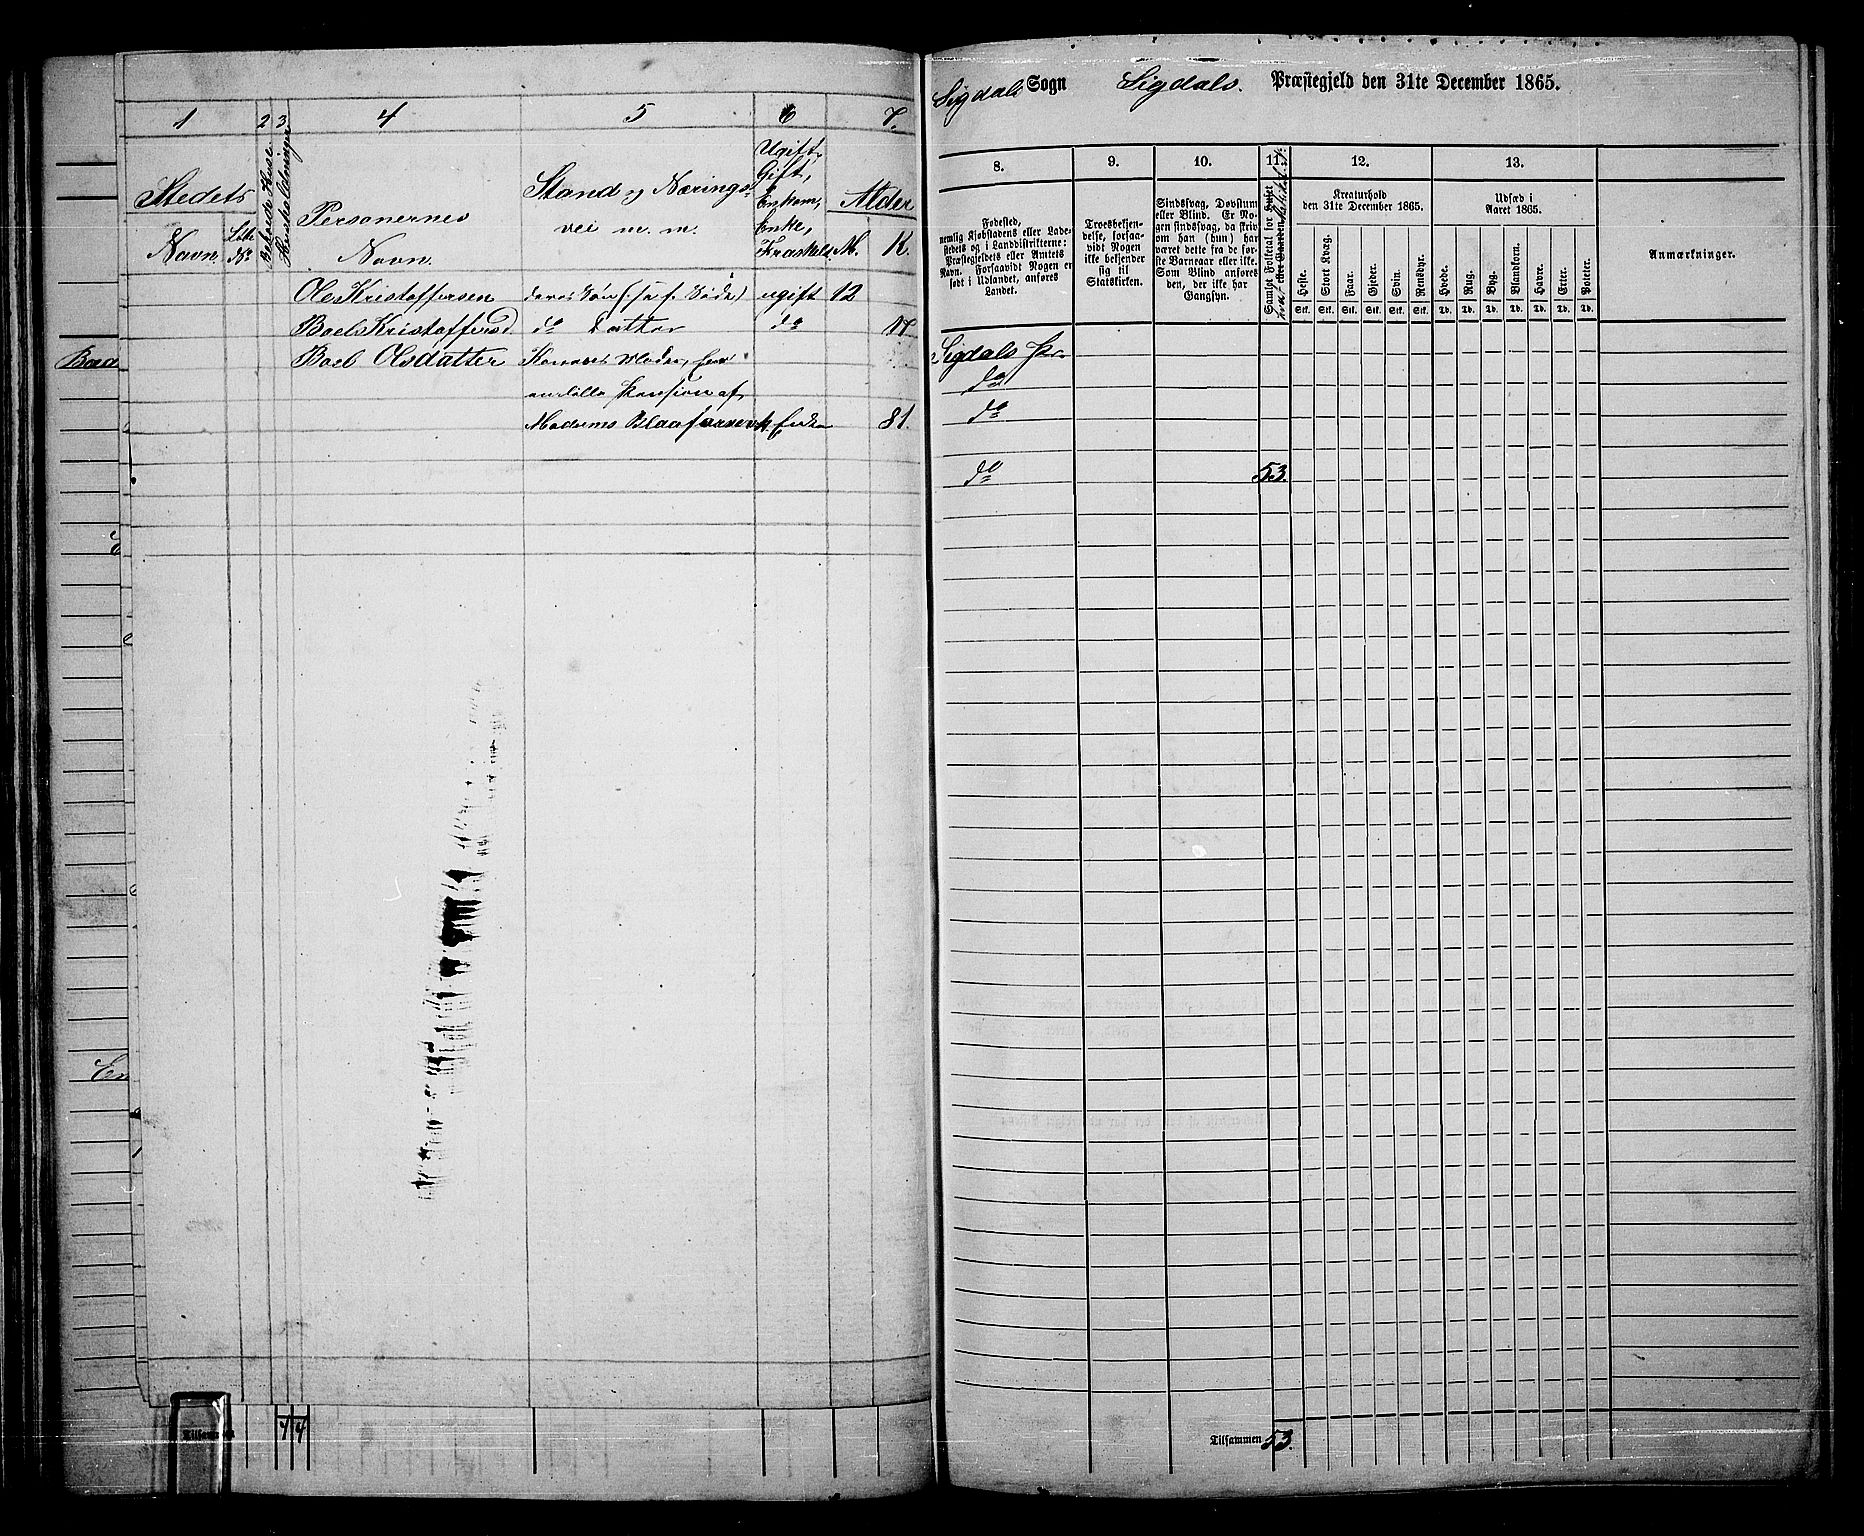 1 2 3 4 5 6 7.
Stedets
Navn.
Beboede Huse.
Huusholdninger
Personernes
Navn.
Stand og Nærings-
vei m. m.
Ugift,
Gift,
Enkem,
Enke,
Fraskilt.
Alder
M. K.
Ole Kristoffersen deres Søn ugift 12
Boel Kristoffersd do Datter do 17
Boel Olsdatter Konens Moder,
Pension af
Modums Blaafarveværk Enke 81
Tilsammen
4 4
Sigdals Sogn Sigdals. Præstegjeld den 31te December 1865.
8. 9. 10. 11. 12. 13.
Fødested,
nemlig Kjøbstadens eller Lade-
stedets og i Landdistrikterne:
Præstegjeldets eller Amtets
Navn. Forsaavidt Nogen er
født i Udlandet, anføres
Landet.
Troesbekjen-
delse, forsaa-
vidt Nogen
ikke bekjender
sig til
Statskirken.
Sindssvag, Døvstum
eller Blind. Er No-
gen sindssvag, da skriv
om han (hun) har
været dette fra de før-
ste Barneaar eller ikke.
Som Blind anføres
den, der ikke har
Gangsyn.
Samlet Folketal for Huset
eller Gaarden
Kreaturhold
den 31te December 1865.
Heste. Stort Kvæg. Faar. Gjeder. Svin. Rensdyr.
Stk. Stk. Stk. Stk. Stk. Stk.
Udsæd i
Aaret 1865.
Hvede. Rug. Byg. Blandkorn. Havre. Erter. Poteter.
Td. Td. Td. Td. Td. Td. Td.
Anmærkninger.
Sigdals Pr.
do
do
do 53
Tilsammen 53.